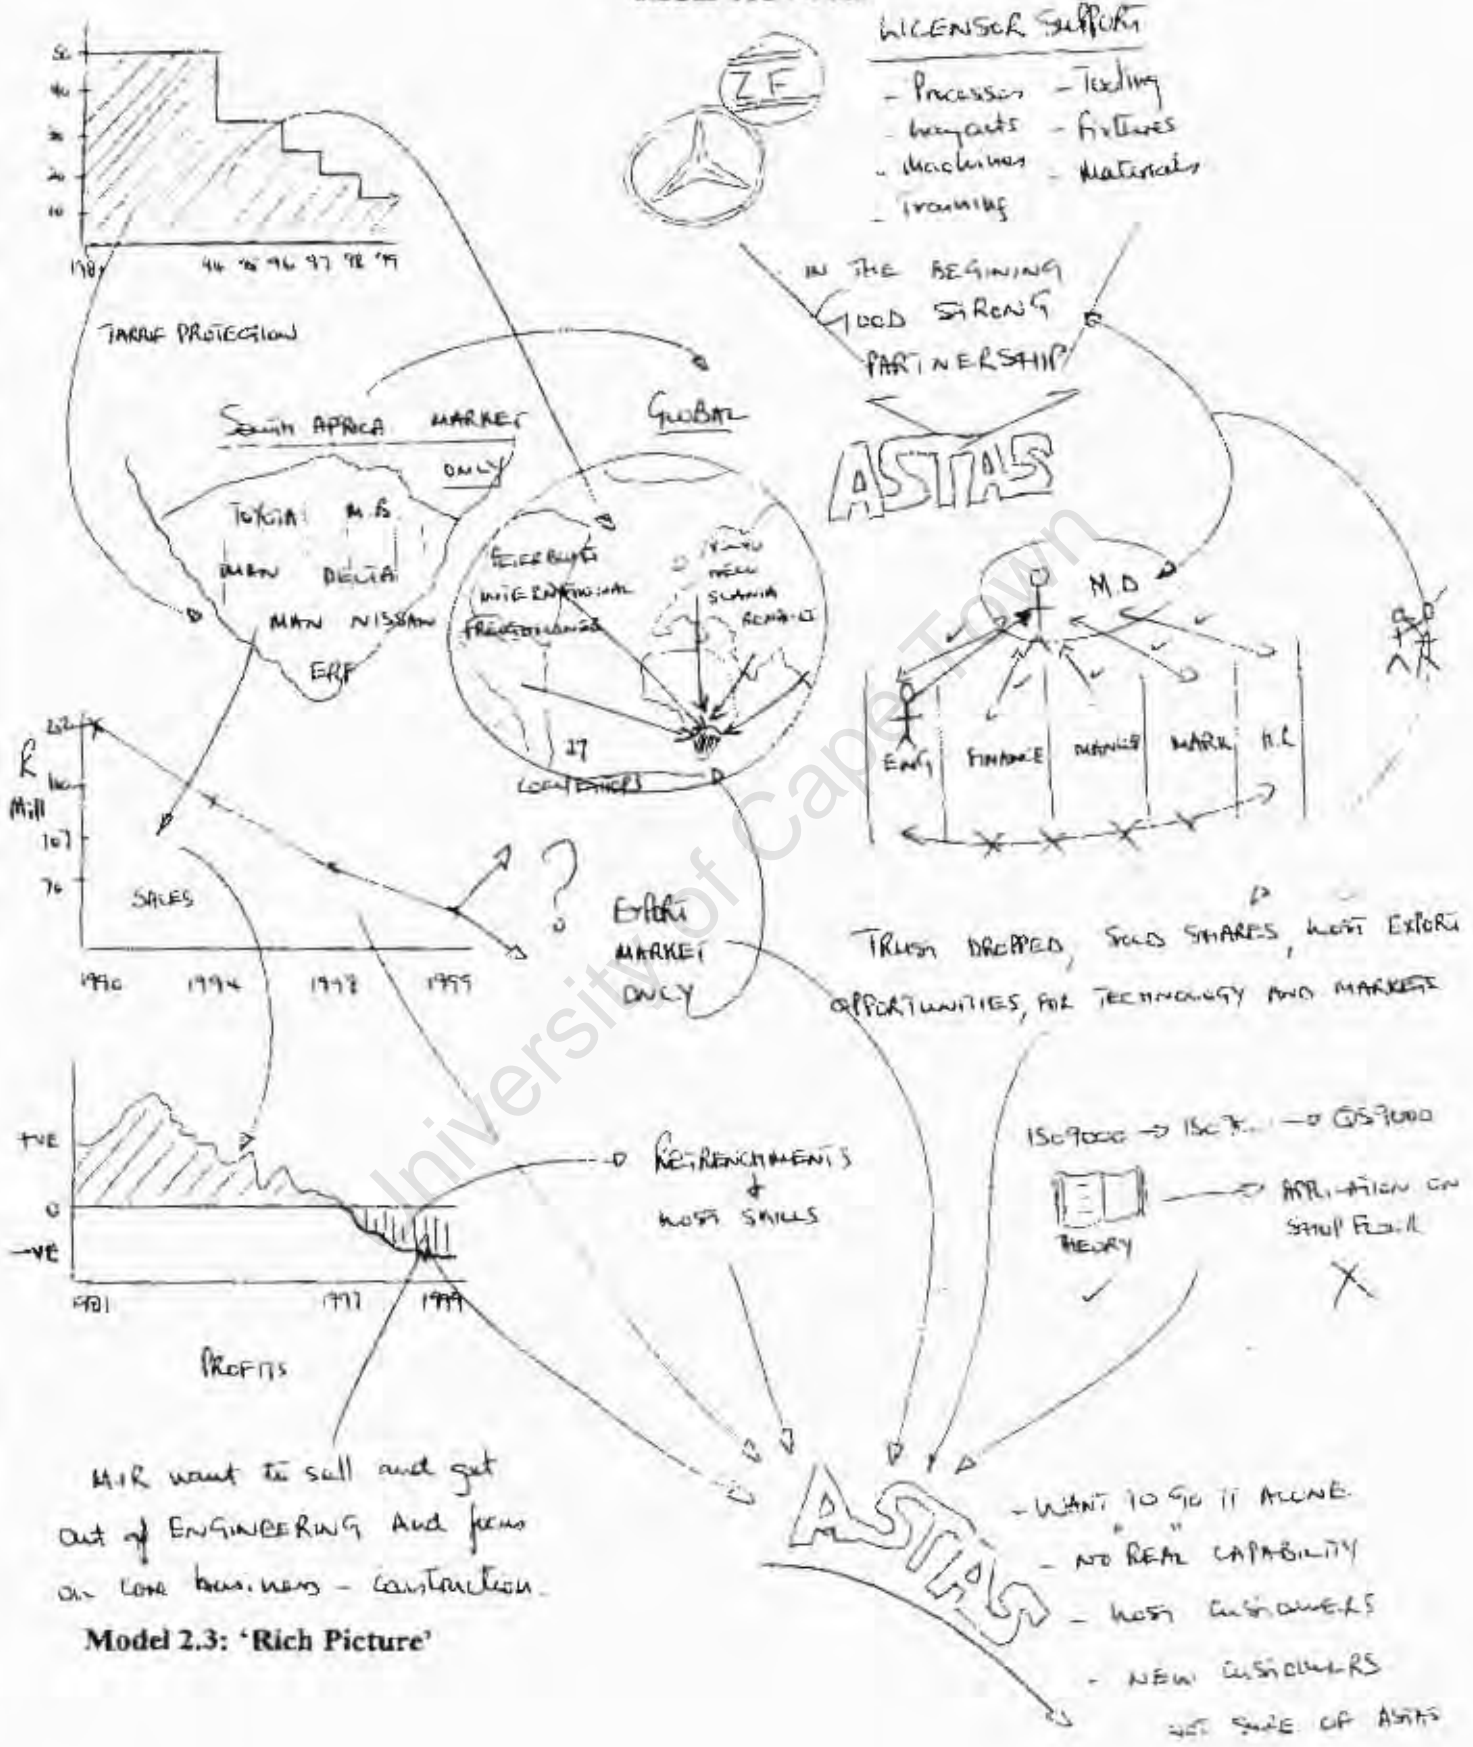 50
40
30
20
10
94 95 96 97 98 99
TARRIF PROTECTION
ZF
LICENSOR SUPPORT
- Processes - Tooling
- Layouts - Fixtures
- Machines - Materials
- Training
IN THE BEGINING
GOOD STRONG
PARTNERSHIP
ASTAS
SOUTH AFRICA MARKET
ONLY
TOYOTA M.B.
MAN DELTA
MAN NISSAN
ERF
GLOBAL
PETERBUILT
INTERNATIONAL
FREIGHTLINER
VOLVO
IVECO
SCANIA
RENAULT
27
COMPETITORS
M.D
ENG FINANCE MANUF MARK H.R
R
Mill
202
107
76
SALES
1990 1994 1998 1999
?
EXPORT
MARKET
ONLY
TRUST DROPPED, SOLD SHARES, LOST EXPORT
OPPORTUNITIES, FOR TECHNOLOGY AND MARKETS
+VE
0
-VE
1981 1997 1999
PROFITS
RETRENCHMENTS
&
LOST SKILLS
ISO9000 QS9000
THEORY
APPLICATION ON
SHOP FLOOR
want to sell and get
out of ENGINEERING And focus
on core business - construction.
ASTAS
- WANT TO GO IT ALONE
- NO "REAL" CAPABILITY
- LOST CUSTOMERS
- NEW CUSTOMERS
NOT SURE OF ASTAS
Model 2.3: ‘Rich Picture’
University of Cape Town